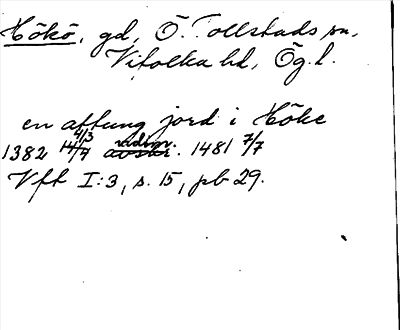 Hökö, gd, Ö. Tollstads sn,
Vifolka hd, Ög. l.
en attung jord i Höke
1382 14/4 4/3 vidim. avskr. 1481 7/7
Vft I:3, s. 15, pb 29.